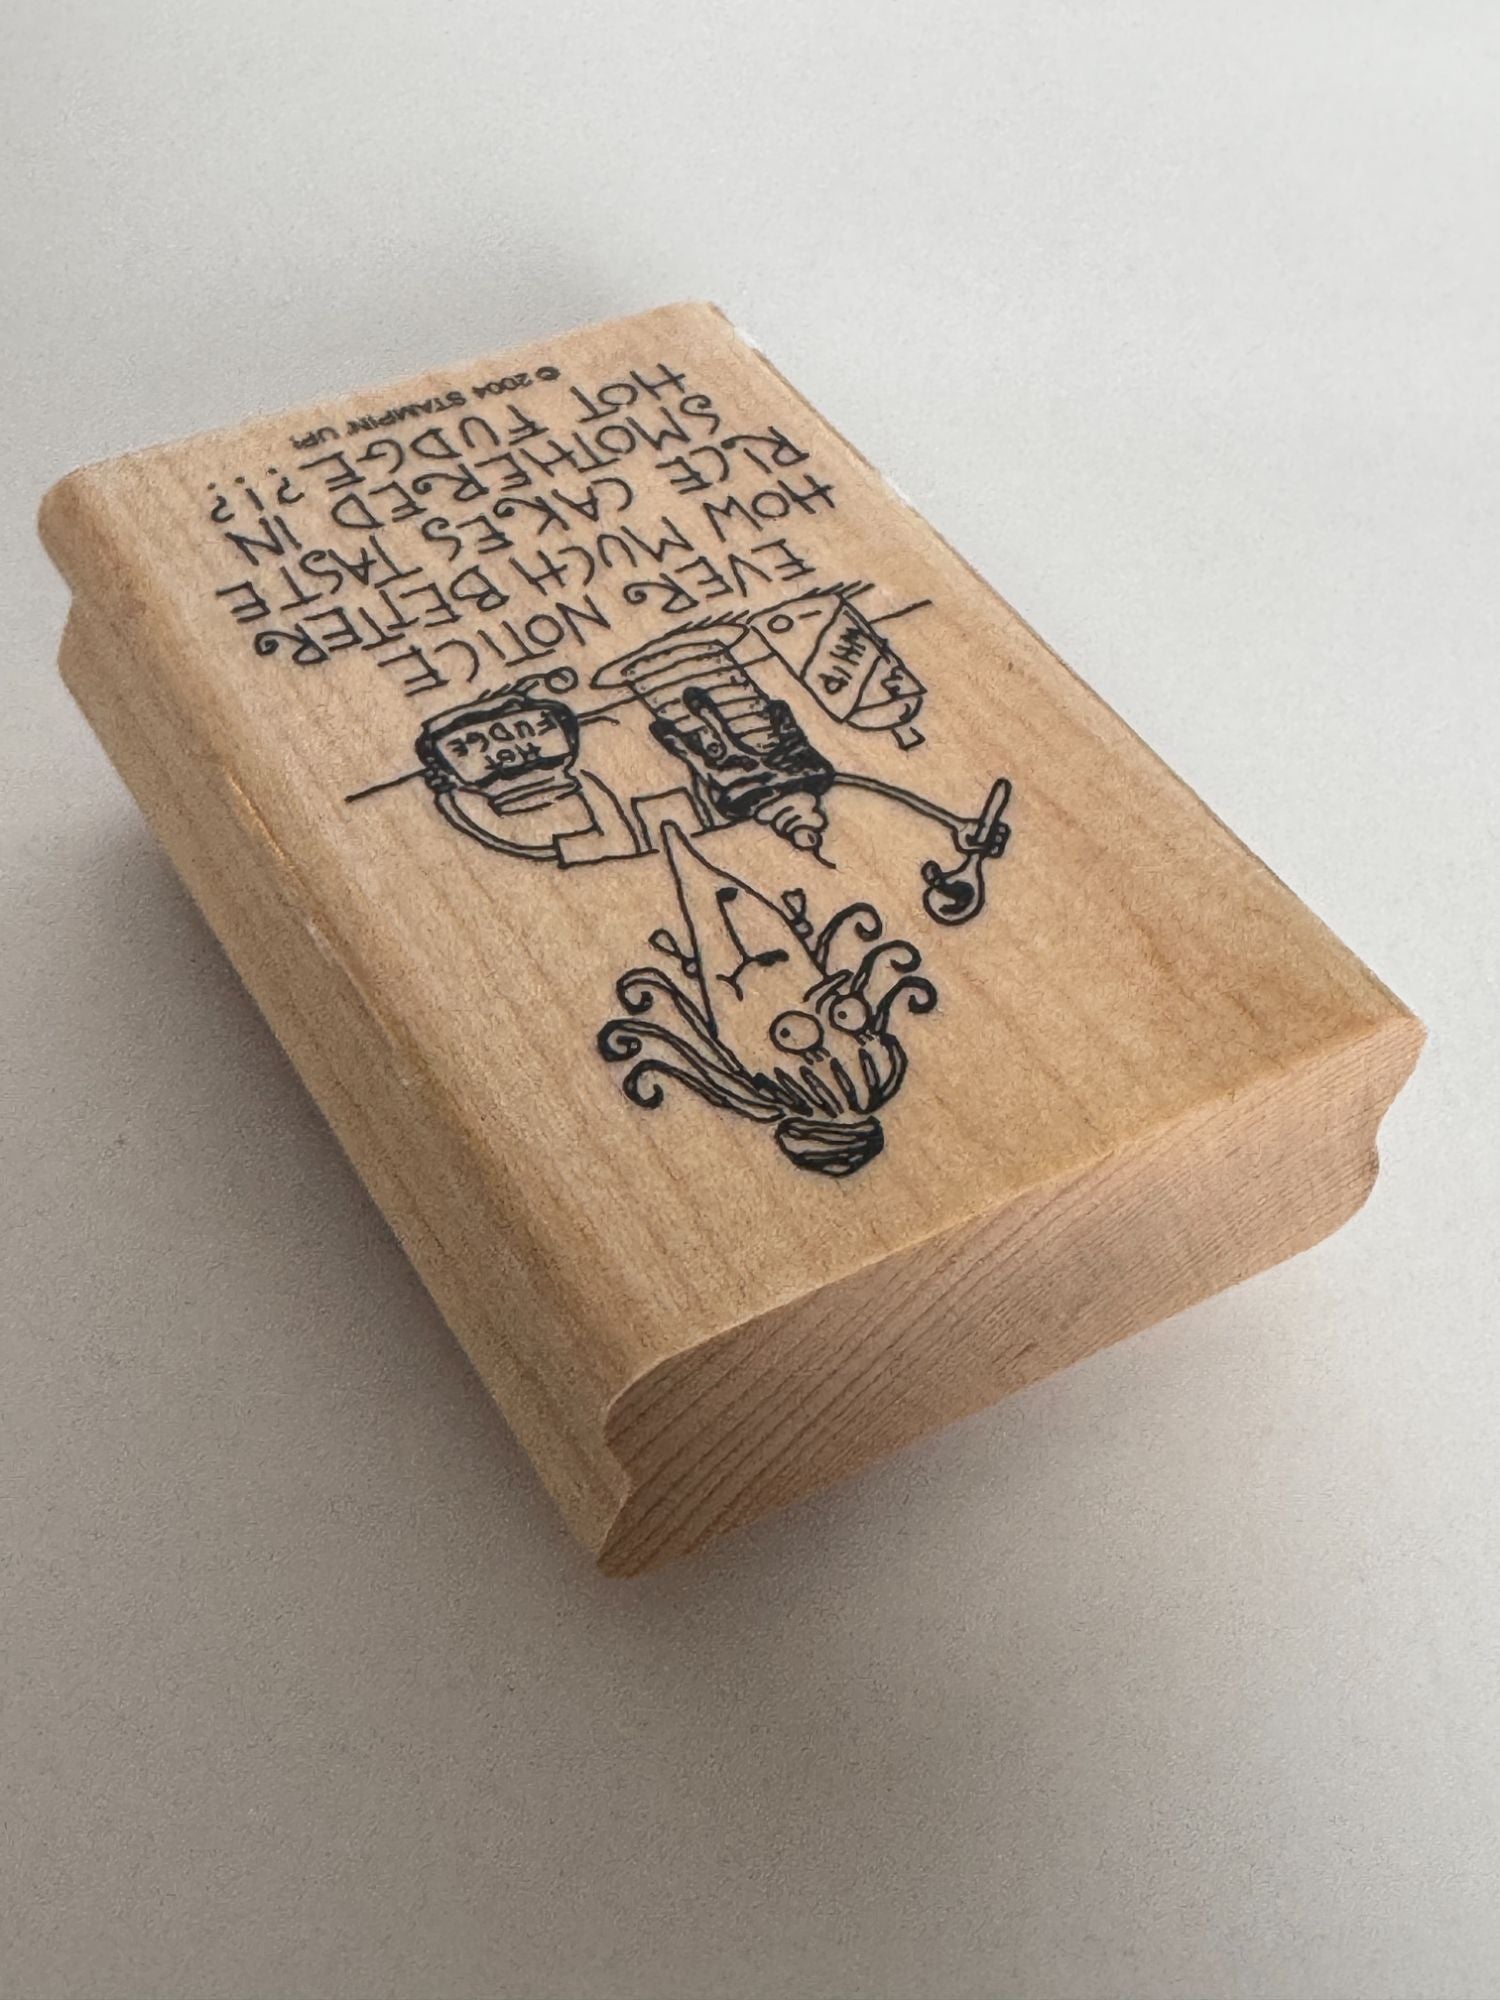 WHIP
HOT
FUDGE
EVER NOTICE
HOW MUCH BETTER
RICE CAKES TASTE
SMOTHERED IN
HOT FUDGE?!?!...
© 2004 STAMPIN' UP!